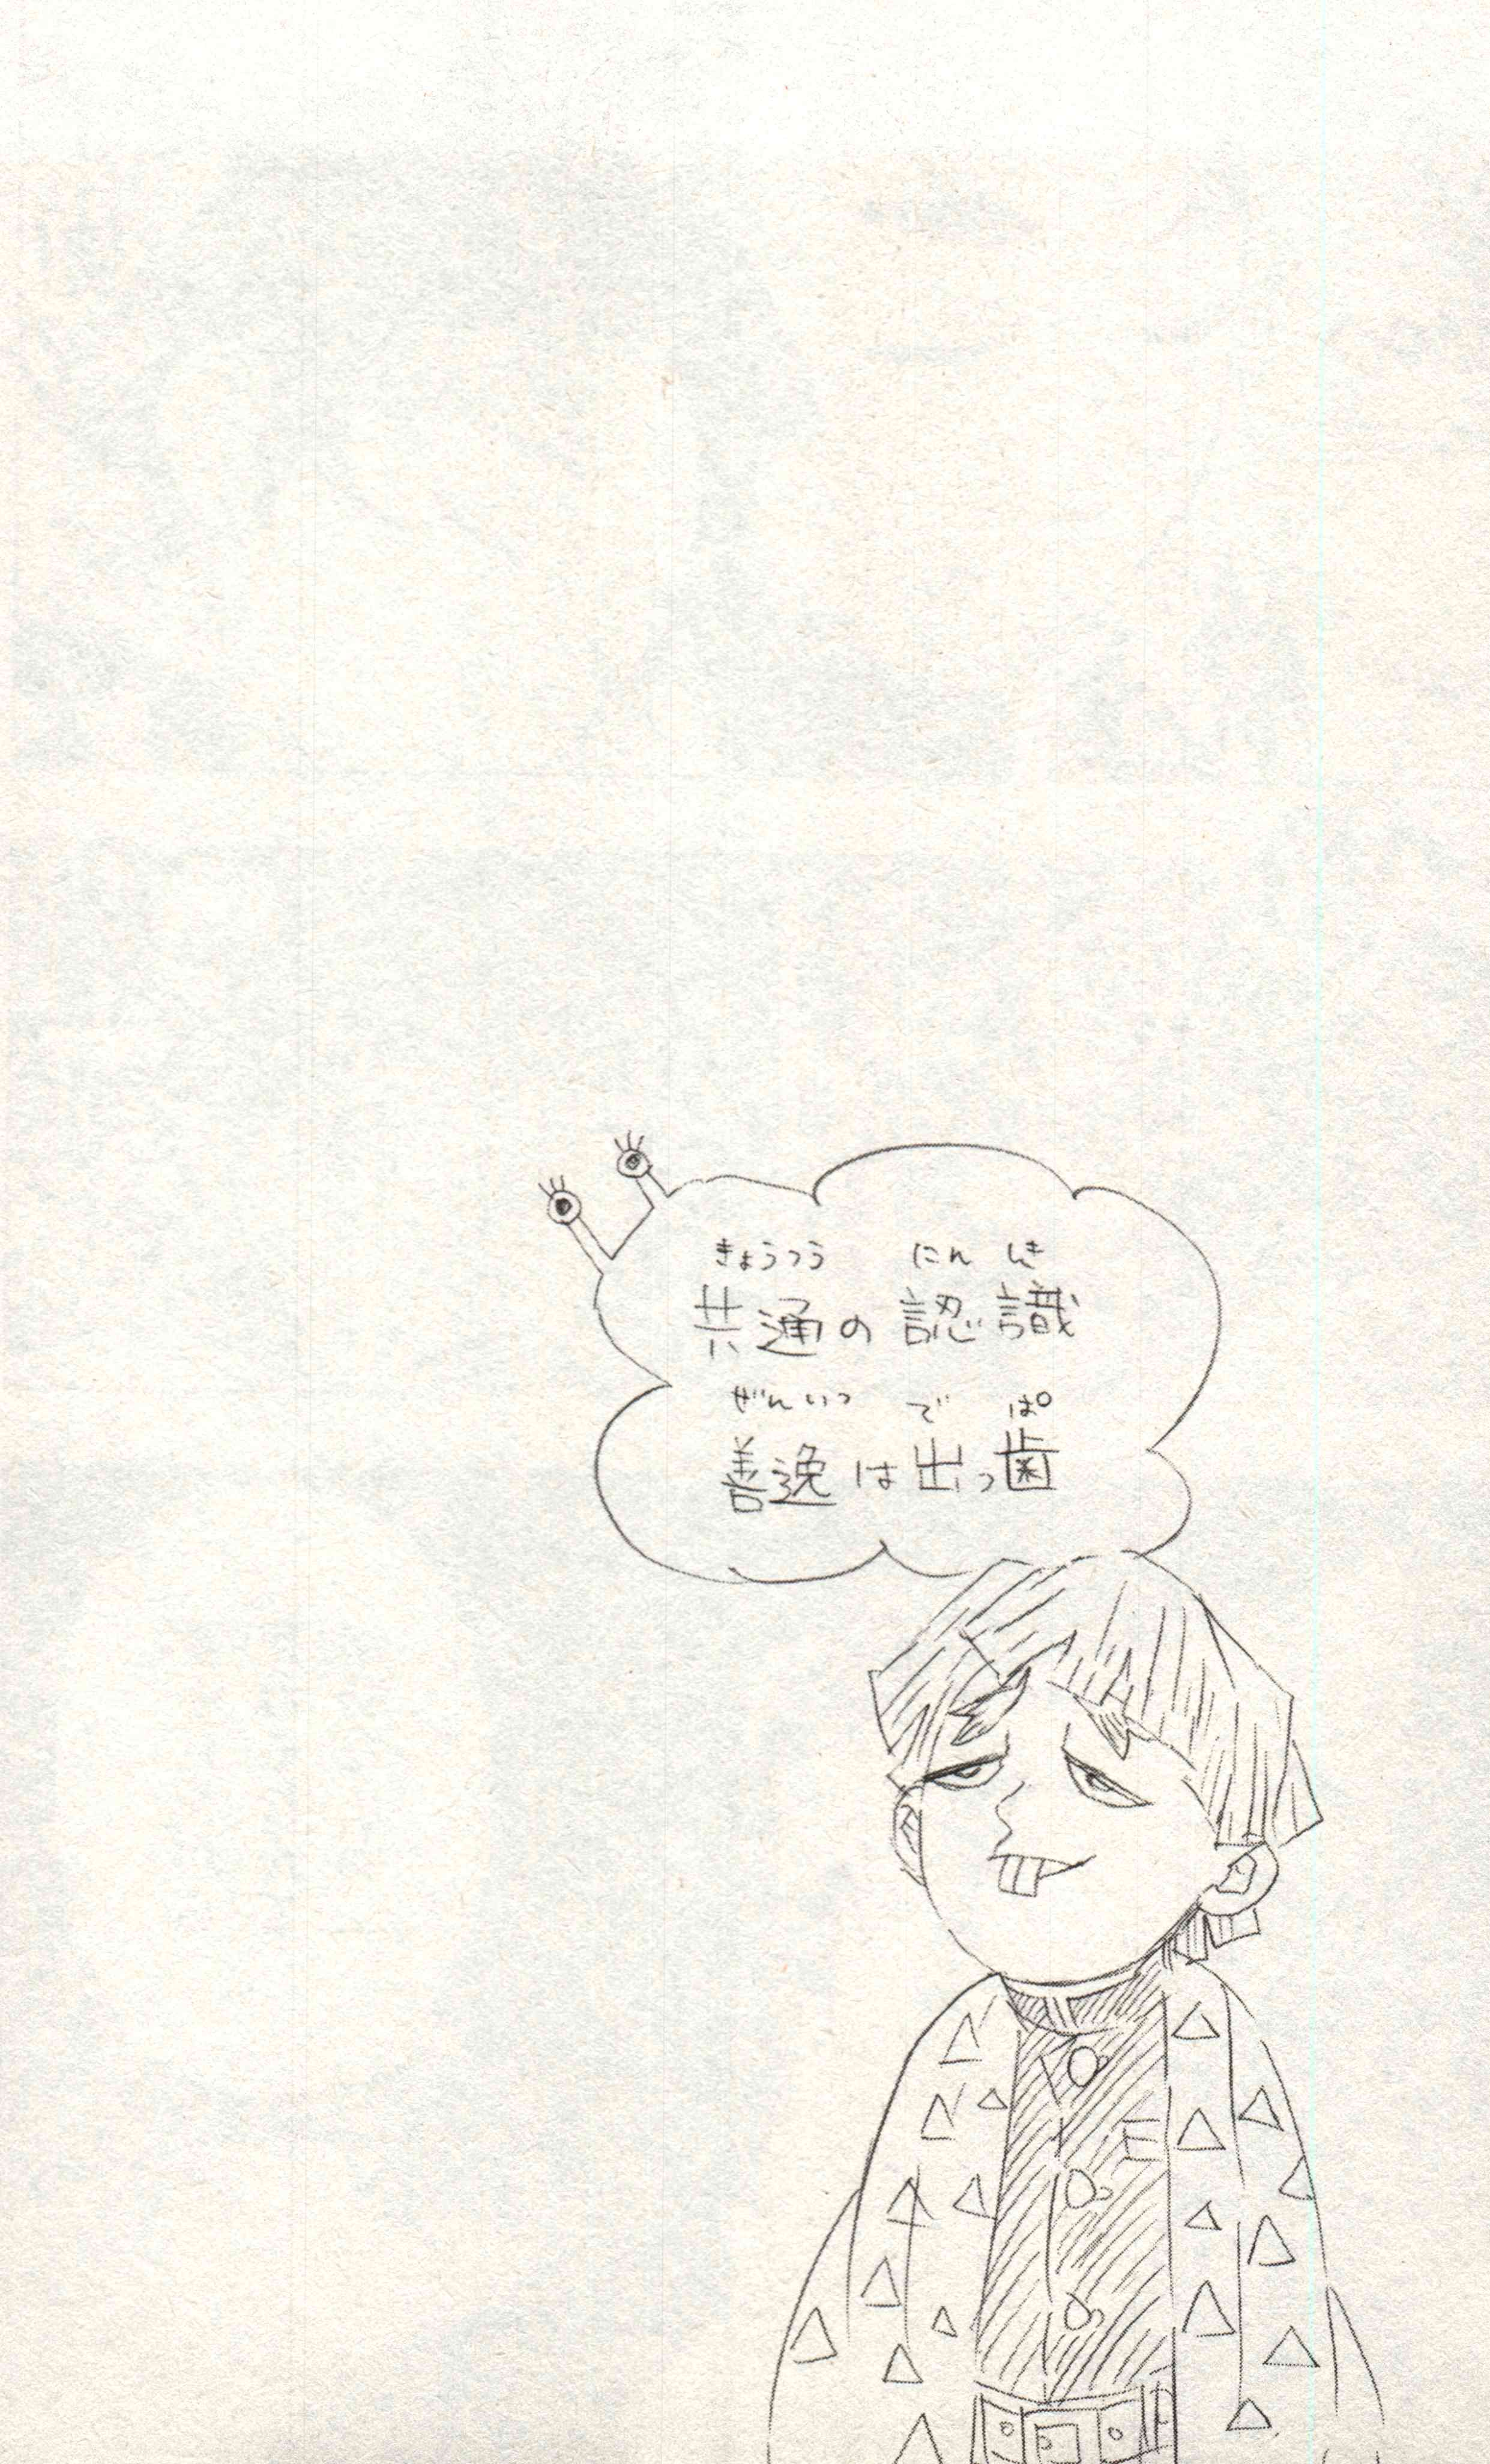 きょうつう にんしき
共通の認識
ぜんいつ でぱ
善逸は出っ歯